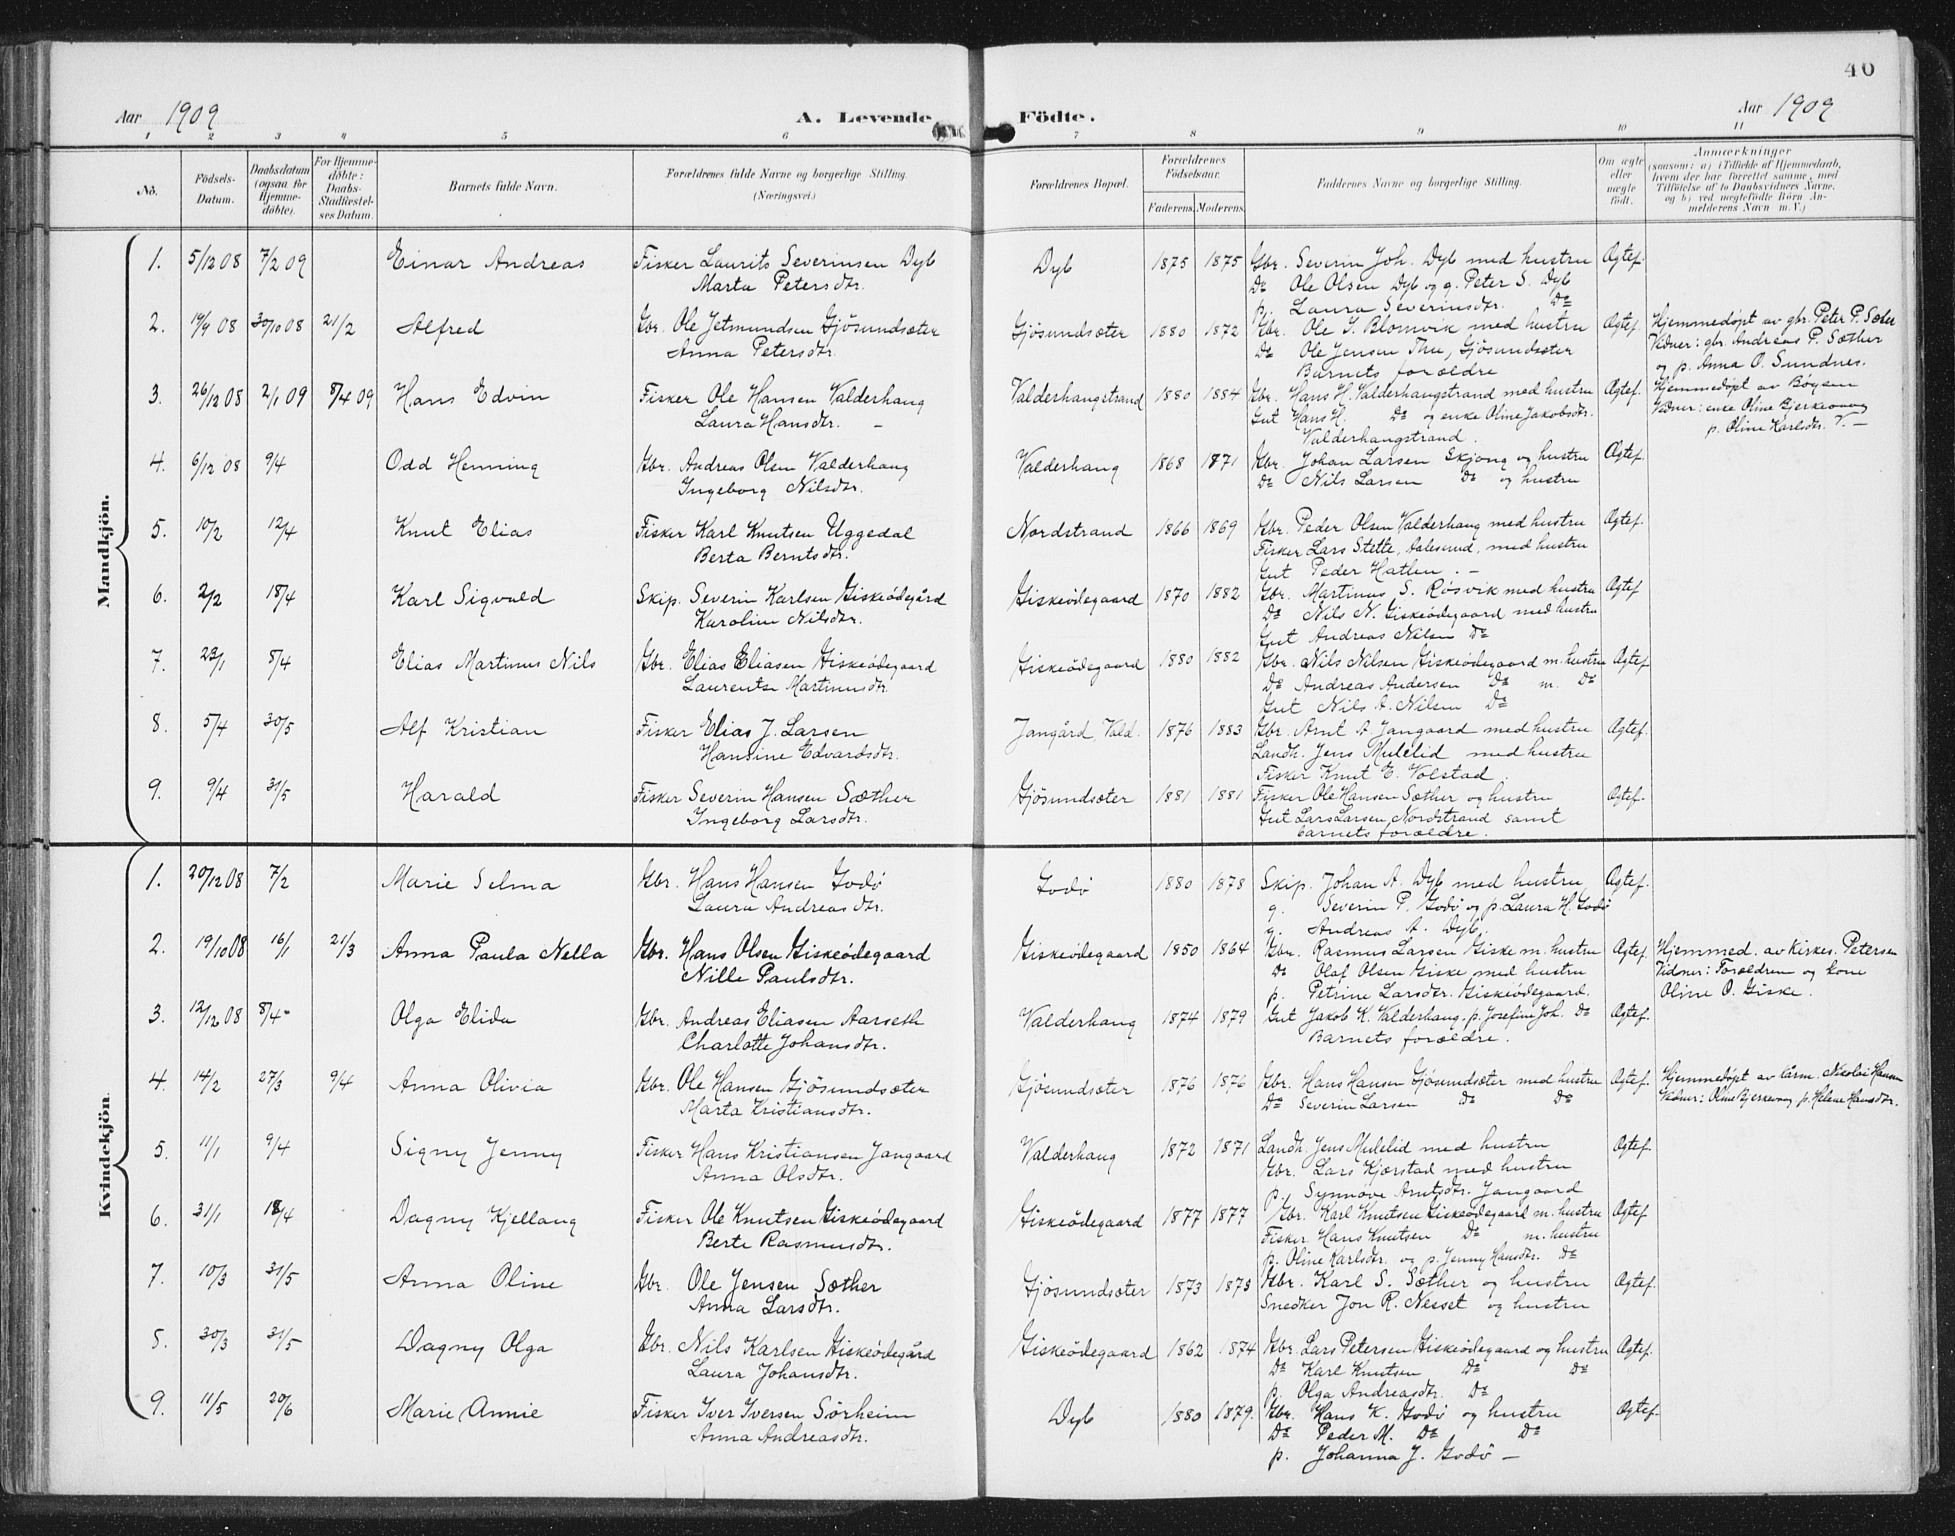 40
Aar 1909 A. Levende Födte. Aar 1909
1 2 3 4 5 6 7 8 9 10 11
No. Födsels-Datum. Daabsdatum (ogsaa for Hjemmedöbte). For Hjemmedöbte: Daabs-Stadfæstelses Datum. Barnets fulde Navn. Forældrenes fulde Navne og borgerlige Stilling. (Næringsvei.) Forældrenes Bopæl. Forældrenes Födselsaar. Faderens. Moderens. Faddernes Navne og borgerlige Stilling. Om ægte eller uægte födt. Anmærkninger
(saasom: a) i Tilfælde af Hjemmedaab, hvem der har forrettet samme, med Tilföielse af to Daabsvidners Navne, og b) ved uægtefödte Börn Anmelderens Navn m. V.)
Mandkjön.
1. 5/12 08 7/2 09 Einar Andreas Fisker Laurits Severinsen Dyb Dyb 1875 1875 Gbr. Severin Joh. Dyb med hustru Ægtef.
Marta Petersdtr. Do Ole Olsen Dyb og g. Peter S. Dyb
p. Laura Severinsdtr. Do
2. 19/9 08 30/10 08 21/2 Alfred Gbr. Ole Jetmundsen Gjösundsæter Gjösundsæter 1880 1872 Gbr. Ole I. Blomvik med hustru Ægtef. Hjemmedøpt av gbr. Peter P. Sæter
Anna Petersdtr. Do Ole Jensen Thu, Gjösundsæter Vidner: gbr. Andreas P. Sæther
Barnets forældre og p. Anna O. Sundnes.
3. 26/12 08 2/1 09 8/4 09 Hans Edvin Fisker Ole Hansen Valderhaug Valderhaugstrand 1880 1884 Gbr. Hans H. Valderhaugstrand med hustru Ægtef. Hjemmedøpt av Bøysen
Laura Hansdtr. – Gut Hans H. Do og enke Oline Jakobsdtr. Vidner: enke Oline Bjerkevaag
Valderhaugstrand. p. Oline Karlsdtr. V. –
4. 6/12 08 9/4 Odd Henning Gbr. Andreas Olsen Valderhaug Valderhaug 1868 1871 Gbr. Johan Larsen Skjong og hustru Ægtef.
Ingeborg Nilsdtr. Do Nils Larsen Do og hustru
5. 10/2 12/4 Knut Elias Fisker Karl Knutsen Uggedal Nordstrand 1866 1869 Gbr. Peder Olsen Valderhaug med hustru Ægtef.
Berta Berntsdtr. Fisker Lars Stette, Aalesund, med hustru
Gut Peder Hatlen. –
6. 2/2 18/4 Karl Sigvald Skip. Severin Karlsen Giskeödegård Giskeödegaard 1870 1882 Gbr. Martinus S. Røsvik med hustru Ægtef
Karoline Nilsdtr. Do Nils N. Giskeödegaard med hustru
Gut Andreas Nilsen Do
7. 23/1 5/4 Elias Martinus Nils Gbr. Elias Eliasen Giskeödegaard Giskeödegaard 1880 1882 Gbr. Nils Nilsen Giskeödegaard m. hustru Ægtef.
Laurentse Martinusdtr. Do Andreas Andersen Do m. Do
Gut Nils A. Nilsen Do
8. 5/4 30/5 Alf Kristian Fisker Elias J. Larsen Jangård, Vald. 1876 1883 Gbr. Arnt A. Jangaard med hustru Ægtef.
Hansine Edvardsdtr. Landh. Jens Mulelid med hustru
Fisker Knut E. Volstad.
9. 9/4 31/5 Harald Fisker Severin Hansen Sæther Gjösundsæter 1881 1881 Fisker Ole Hansen Sæther og hustru Ægtef.
Ingeborg Larsdtr. Gut Lars Larsen, Nordstrand samt
barnets forældre.
Kvindekjön.
1. 20/12 08 7/2 Marie Selma Gbr. Hans Hansen Godö Godö 1880 1878 Skip. Johan A. Dyb med hustru, Ægtef.
Laura Andreasdtr. g. Severin P. Godö og p. Laura H. Godö
g. Andreas A. Dyb.
2. 19/10 08 16/1 21/3 Anna Paula Nella Gbr. Hans Olsen Giskeödegaard Giskeödegaard 1850 1864 Gbr. Rasmus Larsen Giske m. hustru Ægtef. Hjemmed. av Kirkes. Petersen
Nille Paulsdtr. Do Olaf Olsen Giske med hustru Vidner: Forældren og kone
p. Petrine Larsdtr. Giskeödegaard. Oline O. Giske.
3. 12/12 08 8/4 Olga Elida Gbr. Andreas Eliasen Aarseth Valderhaug 1874 1879 Gut Jakob K. Valderhaug, p. Josefine Joh. Do Ægtef.
Charlotte Johansdtr. Barnets forældre.
4. 14/2 27/3 9/4 Anna Olivia Gbr. Ole Hansen Gjösundsæter Gjösundsæter 1876 1876 Gbr. Hans Hansen Gjösundsæter med hustru Ægtef. Hjemmedøpt av Nikolai Hansen
Marta Kristiansdtr. Do Severin Larsen Do Do Vidner: Oline Bjerkevaag p. Helene Hansdtr.
5. 11/1 9/4 Signy Jenny Fisker Hans Kristiansen Jangaard Valderhaug 1872 1871 Landh. Jens Mulelid med hustru Ægtef.
Anna Olsdtr. Gbr. Lars Kjærstad med hustru
p. Synnøve Arntsdtr. Jangaard
6. 31/1 18/4 Dagny Kjellaug Fisker Ole Knutsen Giskeödegaard Giskeödegaard 1877 1877 Gbr. Karl Knutsen Giskeödegaard m. hustru Ægtef
Berte Rasmusdtr. Fisker Hans Knutsen Do m. hustru
p. Oline Karlsdtr. og p. Jenny Hansdtr. Do
7. 10/3 31/5 Anna Oline Gbr. Ole Jensen Sæther Gjösundsæter 1873 1873 Gbr. Karl S. Sæther og hustru Ægtef.
Anna Larsdtr. Snedker Jon R. Nesset og hustru
8. 30/3 31/5 Dagny Olga Gbr. Nils Karlsen Giskeödegård Giskeödegaard 1862 1874 Gbr. Lars Petersen Giskeödegaard og hustru Ægtef.
Laura Johansdtr. Do Karl Knutsen Do Do
p. Olga Andreasdtr. Do
9. 11/5 20/6 Marie Annie Fisker Iver Iversen Sörheim Dyb 1880 1879. Gbr. Hans K. Godö og hustru Ægtef.
Anna Andreasdtr. Do Peder M. Do Do
p. Johanna J. Godö –